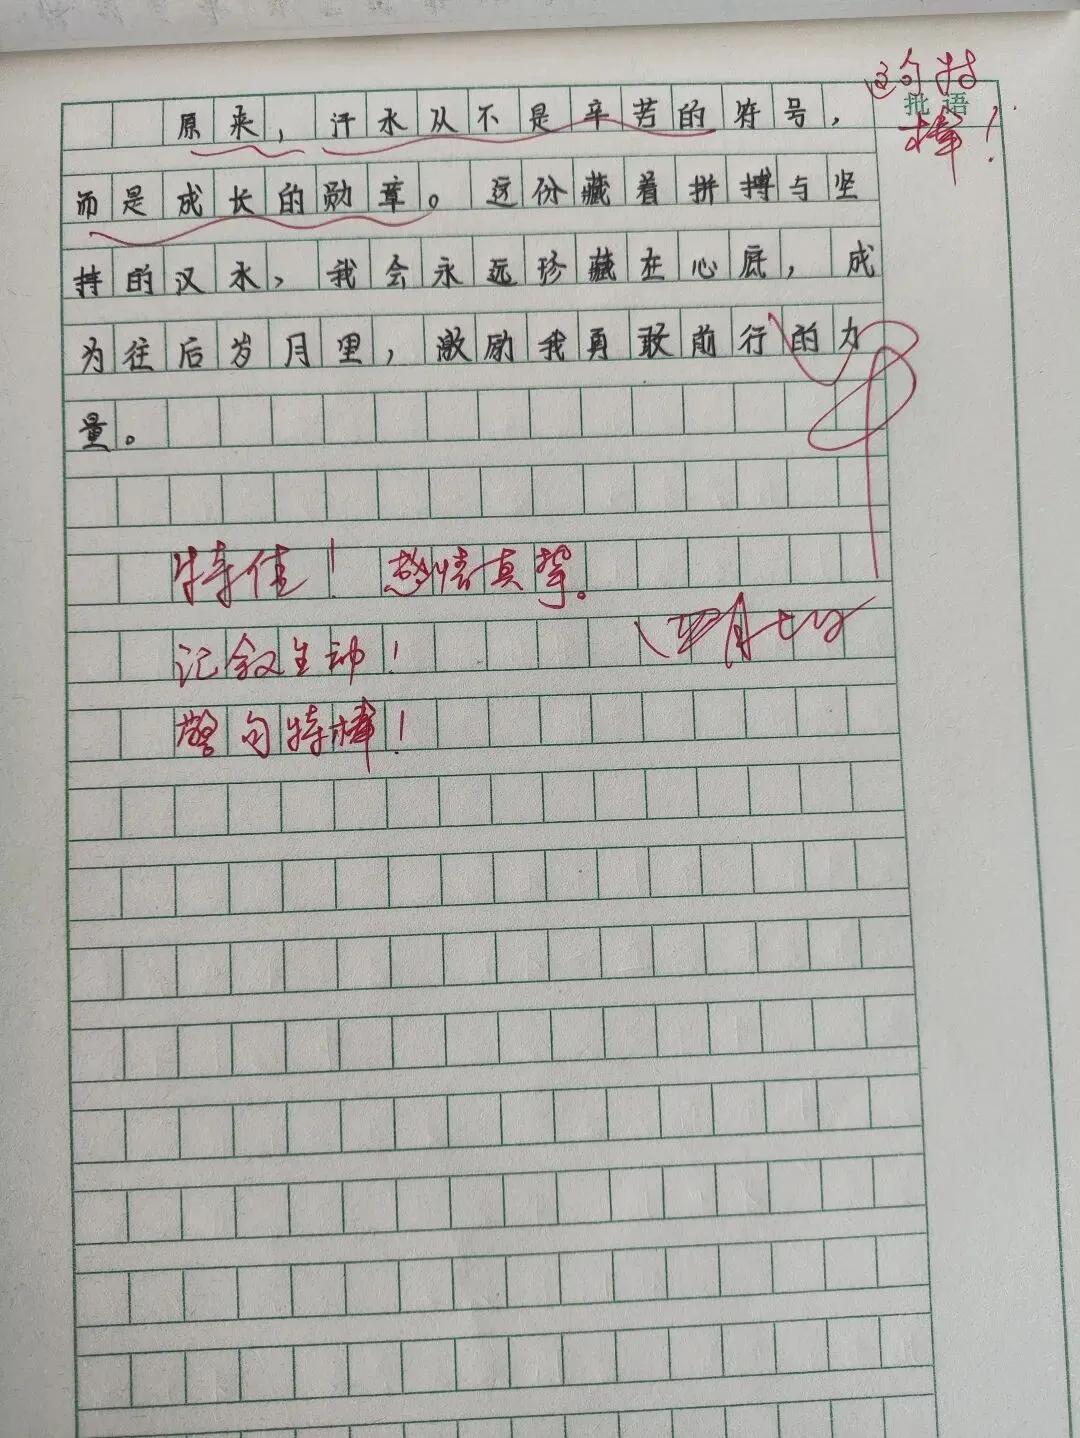 这句特
批语
棒!
原来,汗水从不是辛苦的符号,
而是成长的勋章。这份藏着拼搏与坚
持的汉水,我会永远珍藏在心底,成
为往后岁月里,激励我勇敢前行的力
量。
特佳!感情真挚。
记叙生动!
警句特棒!